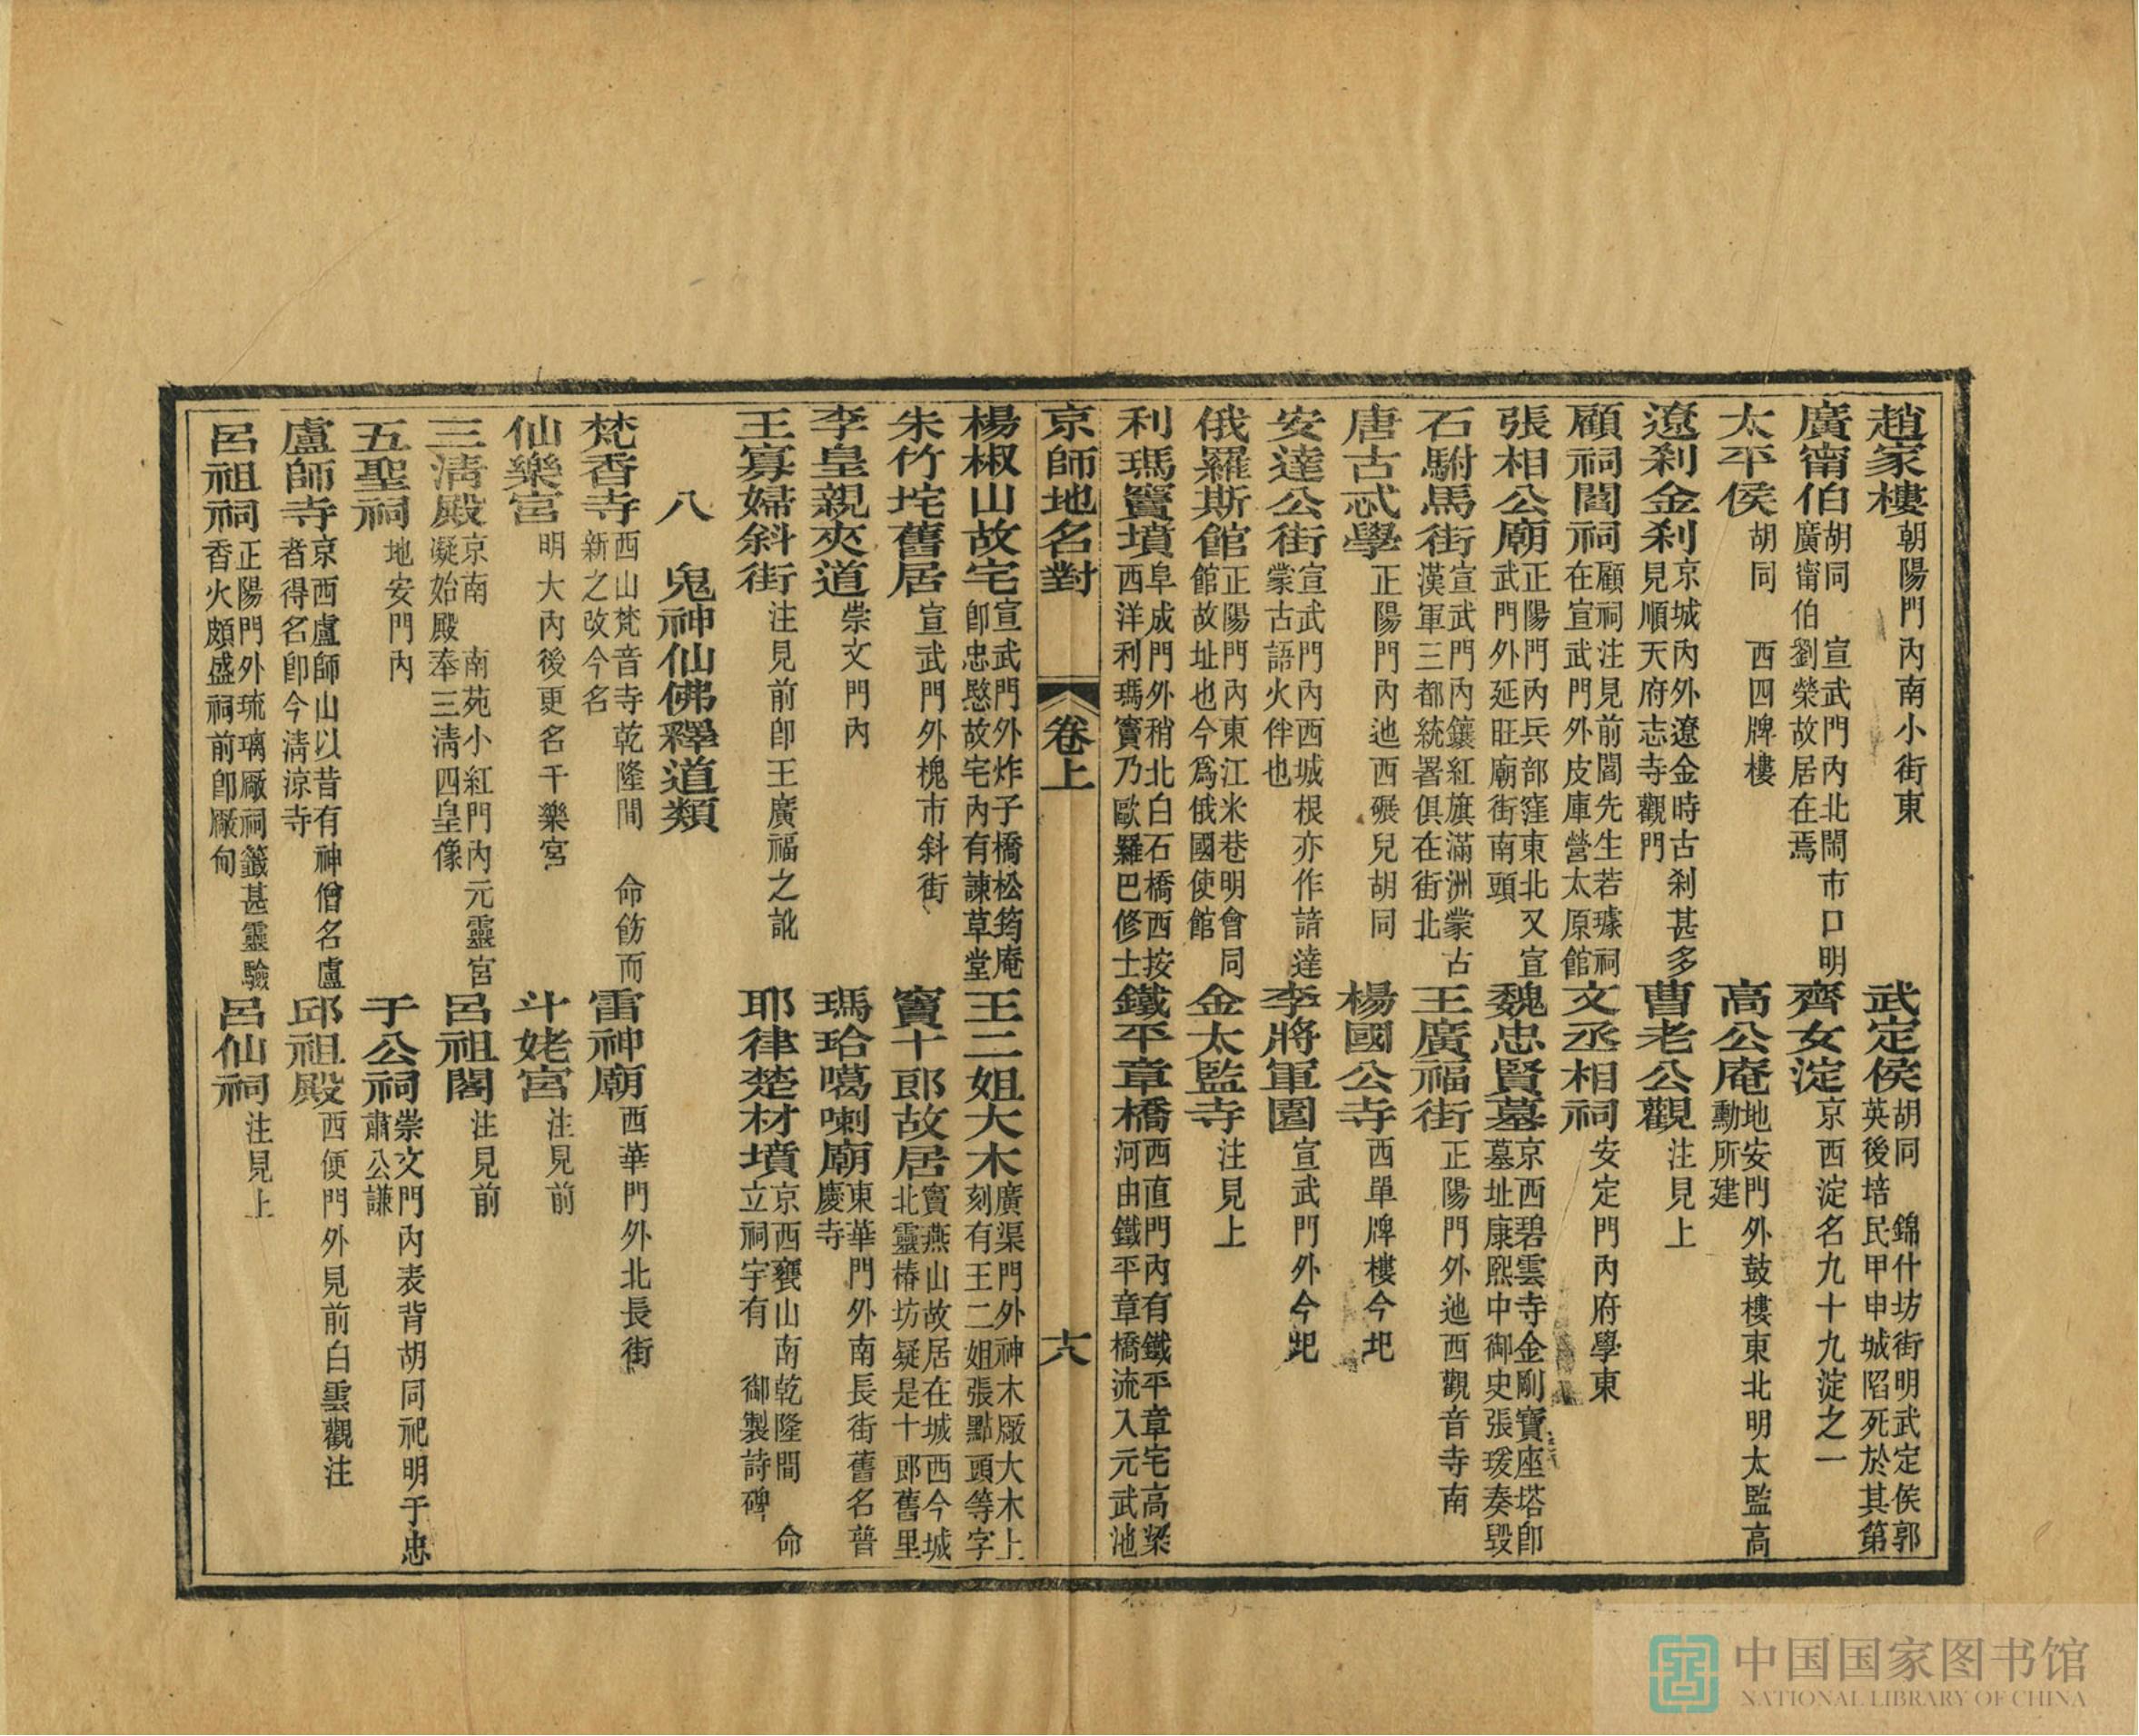 趙家樓朝陽門內南小街東　武定侯胡同　錦什坊街明武定侯郭英後培民甲申城陷死於其第
廣甯伯胡同　宣武門內北鬧市口明廣甯伯劉榮故居在焉　齊女淀京西淀名九十九淀之一
太平侯胡同　西四牌樓　高公庵地安門外鼓樓東北明太監高勳所建
遼刹金刹京城內外遼金時古刹甚多見順天府志寺觀門　曹老公觀注見上
顧祠閻祠顧祠注見前閻先生若璩祠在宣武門外皮庫營太原館　文丞相祠安定門內府學東
張相公廟正陽門內兵部窪東北又宣武門外延旺廟街南頭　魏忠賢墓京西碧雲寺金剛寶座塔卽墓址康熙中御史張瑗奏毀
石駙馬街宣武門內鑲紅旗滿洲蒙古漢軍三都統署俱在街北　王廣福街正陽門外迆西觀音寺南
唐古忒學正陽門內迆西碾兒胡同　楊國公寺西單牌樓今圯
安達公街宣武門內西城根亦作諳達蒙古語火伴也　李將軍園宣武門外今圯
俄羅斯館正陽門內東江米巷明會同館故址也今爲俄國使館　金太監寺注見上
利瑪竇墳阜成門外稍北白石橋西按西洋利瑪竇乃歐羅巴修士　鐵平章橋西直門內有鐵平章宅高梁河由鐵平章橋流入元武池
京師地名對　卷上　十六
楊椒山故宅宣武門外炸子橋松筠庵卽忠愍故宅內有諫草堂　王二姐大木廣渠門外神木厰大木上刻有王二姐張點頭等字
朱竹垞舊居宣武門外槐市斜街　竇十郎故居竇燕山故居在城西今城北靈椿坊疑是十郎舊里
李皇親夾道崇文門內　瑪哈噶喇廟東華門外南長街舊名普慶寺
王寡婦斜街注見前卽王廣福之訛　耶律楚材墳京西甕山南乾隆間　命立祠宇有　御製詩碑
八　鬼神仙佛釋道類
梵香寺西山梵音寺乾隆間　命飭而新之改今名　雷神廟西華門外北長街
仙樂宮明大內後更名千樂宮　斗姥宮注見前
三淸殿京南　南苑小紅門內元靈宮凝始殿奉三淸四皇像　呂祖閣注見前
五聖祠地安門內　于公祠崇文門內表背胡同祀明于忠肅公謙
盧師寺京西盧師山以昔有神僧名盧者得名卽今淸涼寺　邱祖殿西便門外見前白雲觀注
呂祖祠正陽門外琉璃厰祠籤甚靈驗香火頗盛祠前卽厰甸　呂仙祠注見上
中国国家图书馆
NATIONAL LIBRARY OF CHINA